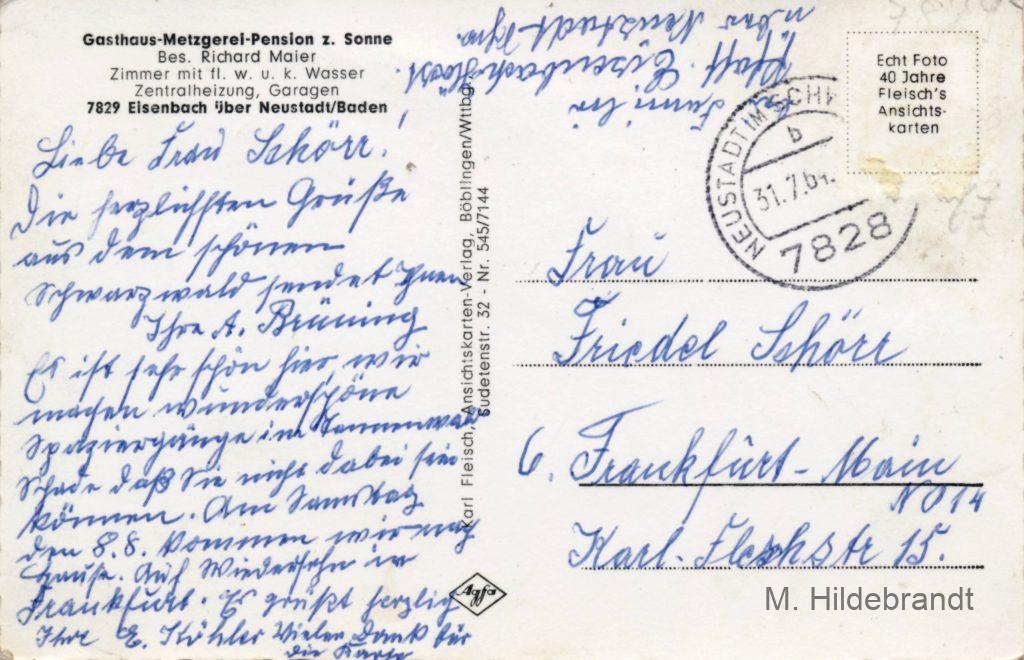 Gasthaus-Metzgerei-Pension z. Sonne
Bes. Richard Maier
Zimmer mit fl. w. u. k. Wasser
Zentralheizung, Garagen
7829 Eisenbach über Neustadt/Baden
Liebe Frau Schörr!
Die herzlichsten Grüße
aus dem schönen
Schwarzwald sendet Ihnen
Ihre A. Brüning
Es ist sehr schön hier, wir
machen wunderschöne
Spaziergänge im Tannenwald
Schade daß Sie nicht dabei sein
können. Am Samstag
den 8.8. kommen wir nach
Hause. Auf Wiedersehn in
Frankfurt. Es grüßt herzlich
Ihre E. Köhler Vielen Dank für
die Karte
Karl Fleisch, Ansichtskarten-Verlag, Böblingen/Wttbg.
Sudetenstr. 32 - Nr. 545/7144
Agfa
Pfaff. Eisenbach-Höchst
über Neustadt
NEUSTADT IM SCHW
b
31.7.64.
7828
Echt Foto
40 Jahre
Fleisch's
Ansichts-
karten
Frau
Friedel Schörr
6. Frankfurt-Main
NO 14
Karl-Fleschstr 15.
M. Hildebrandt